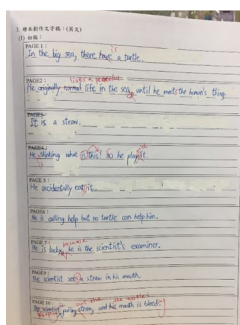 3. 繪本創作文字稿:(英文)
(1) 初稿:
PAGE 1:
is
In the big sea, there have a turtle.
PAGE2:
lives a peaceful
He originally normal life in the sea, until he meets the human's thing.
PAGE3:
It is a straw.
PAGE4:
He thinking what is this? So he play it.
PAGE 5:
He accidentally eat it.
PAGE6:
He is calling help but no turtle can help him.
PAGE 7:
He is lucky, he is the scientist's examiner.
PAGE8:
scientist see a straw in his mouth.
PAGE 10:
The scientist straw, and his mouth is